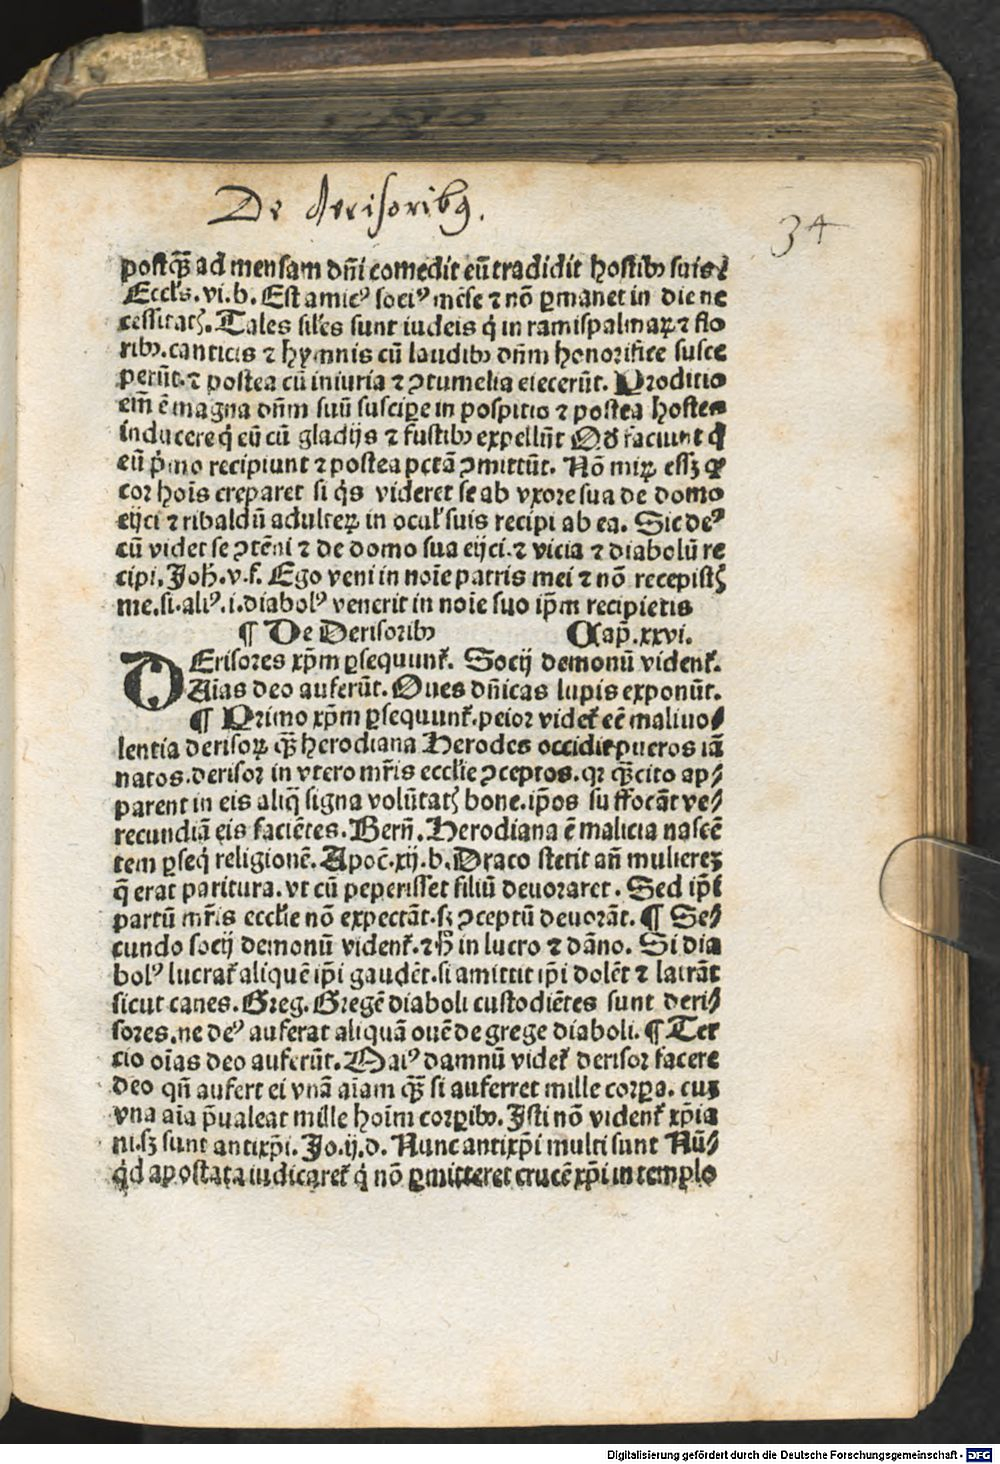 De derisoribꝰ.
34
postqᷓ ad mensam dñi comedit eū tradidit hostibꝫ suis⸗
Eccls̄. vi. b. Est amicꝰ sociꝰ mēse ⁊ nō ꝑmanet in die ne
cessitatꝭ. Tales siles sunt iudeis q̇ in ramispalmaꝝ ⁊ flo
ribꝫ. canticis ⁊ hymnis cū laudibꝫ dñm honorifice susce
perūt. ⁊ postea cū iniuria ⁊ ꝯtumelia eiecerūt. Proditio
em̄ ē magna dñm suū suscipe in hospitio ⁊ postea hostes
inducere q̇ eū cū gladijs ⁊ fustibꝫ expellūt Qđ faciunt q̇
eū p̓mo recipiunt ⁊ postea pctā ꝯmittūt. Nō miꝝ essꝫ qꝛ
cor hoīs creparet si q̇s videret se ab vxore sua de domo
eijci ⁊ ribaldū adulteꝝ in ocul̓ suis recipi ab ea. Sic deꝰ
cū videt se ꝯtēni ⁊ de domo sua eijci. ⁊ vicia ⁊ diabolū re
cipi. Joh̄. v. f. Ego veni in noīe patris mei ⁊ nō recepistꝭ
me. si. aliꝰ. i. diabolꝰ venerit in noīe suo ip̄m recipietis
¶ De Derisoribꝫ Cap̄. xxvi.
DErisores xp̄m ꝑsequunt᷑. Socij demonū vident᷑.
Aīas deo auferūt. Oues dñicas lupis exponūt.
¶ Primo xp̄m ꝑsequunt᷑. peior videt᷑ eē maliuo⸗
lentia derisoꝝ qᷓ herodiana Herodes occidit pueros iā
natos. derisor in vtero mr̄is ecclīe ꝯceptos. qꝛ qᷓcito ap⸗
parent in eis aliq̄ signa volūtatꝭ bone. ip̄os suffocāt ve⸗
recundiā eis faciētes. Berñ. Herodiana ē malicia nascē
tem ꝑseq̇ religionē. Apoc̄. xij. b. Draco stetit añ mulierez
q̄ erat paritura. vt cū peperisset filiū deuoraret. Sed ip̄i
partū mr̄is ecclīe nō expectāt. sꝫ ꝯceptū deuorāt. ¶ Se⸗
cundo socij demonū vident᷑. ⁊ h̄ in lucro ⁊ dāno. Si dia
bolꝰ lucrat᷑ aliquē ip̄i gaudēt. si amittit ip̄i dolēt ⁊ latrāt
sicut canes. Greg. Gregē diaboli custodiētes sunt deri⸗
sores. ne deꝰ auferat aliquā ouē de grege diaboli. ¶ Ter
cio oīas deo auferūt. Maiꝰ damnū videt᷑ derisor facere
deo qñ aufert ei vnā aīam qᷓ si auferret mille corꝑa. cuz
vna aīa p̄ualeat mille hoīm corꝑibꝫ. Isti nō vident᷑ xp̄ia
ni. sꝫ sunt antixp̄i. Jo. ij. d. Nunc antixp̄i multi sunt Nū⸗
q̇d apostata iudicaret᷑ q̇ nō ꝑmitteret crucē xp̄i in templo
Digitalisierung gefördert durch die Deutsche Forschungsgemeinschaft - DFG